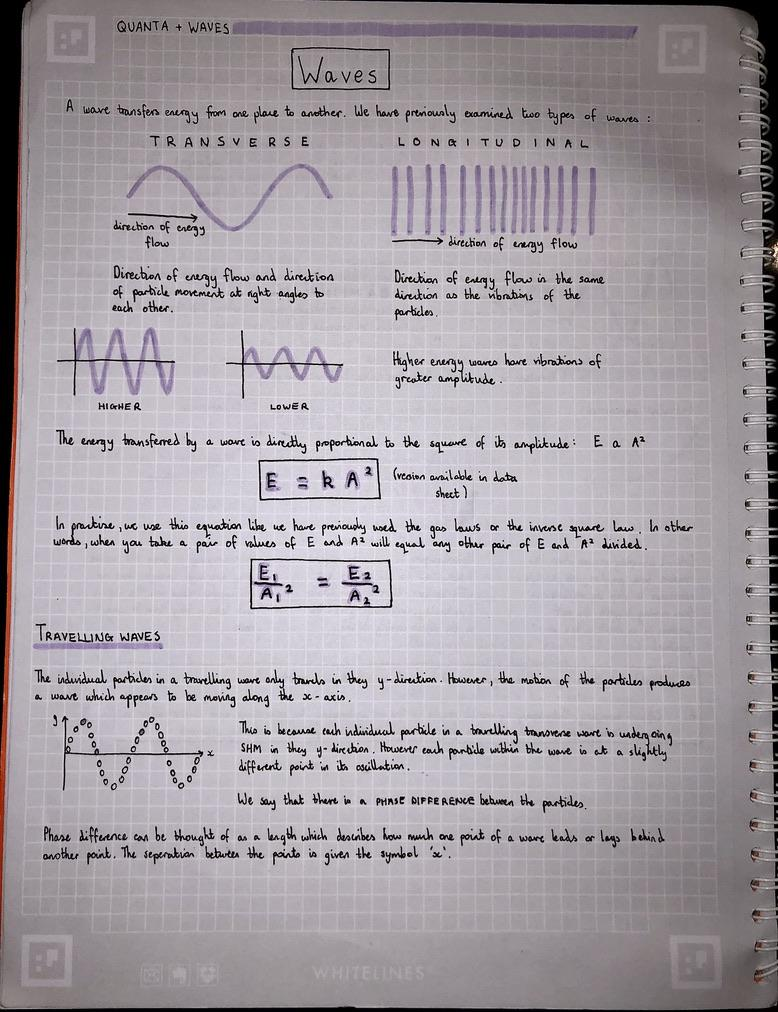 QUANTA + WAVES
Waves
A wave transfers energy from one place to another. We have previously examined two types of waves :
TRANSVERSE
LONGITUDINAL
direction of energy
flow
direction of energy flow
Direction of energy flow and direction
of particle movement at right angles to
each other.
Direction of energy flow in the same
direction as the vibrations of the
particles.
HIGHER
LOWER
Higher energy waves have vibrations of
greater amplitude.
The energy transferred by a wave is directly proportional to the square of its amplitude: E α A²
E = k A²
(version available in data
sheet)
In practise, we use this equation like we have previously used the gas laws or the inverse square law. In other
words, when you take a pair of values of E and A² will equal any other pair of E and A² divided.
E₁/A₁² = E₂/A₂²
TRAVELLING WAVES
The individual particles in a travelling wave only travels in they y-direction. However, the motion of the particles produces
a wave which appears to be moving along the x-axis.
y
x
This is because each individual particle in a travelling transverse wave is undergoing
SHM in they y-direction. However each particle within the wave is at a slightly
different point in its oscillation.
We say that there is a PHASE DIFFERENCE between the particles.
Phase difference can be thought of as a length which describes how much one point of a wave leads or lags behind
another point. The seperation between the points is given the symbol 'x'.
WHITELINES